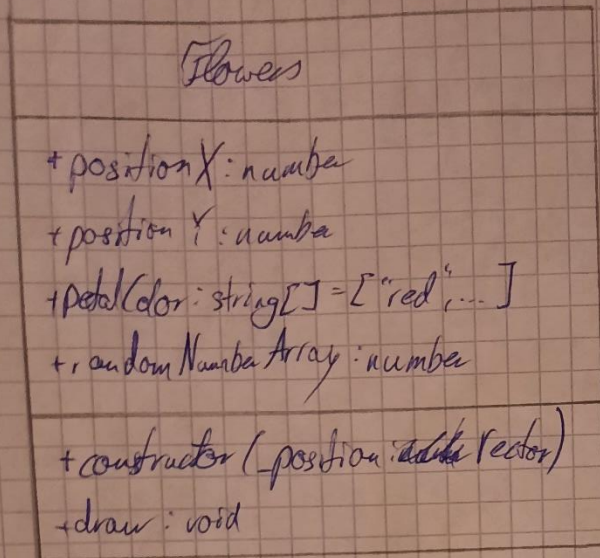 Flowers
+ positionX: number
+ positionY: number
+ petalColor: string[] = ["red", ... ]
+ randomNumberArray: number
+ constructor(_position: Vector)
+ draw: void